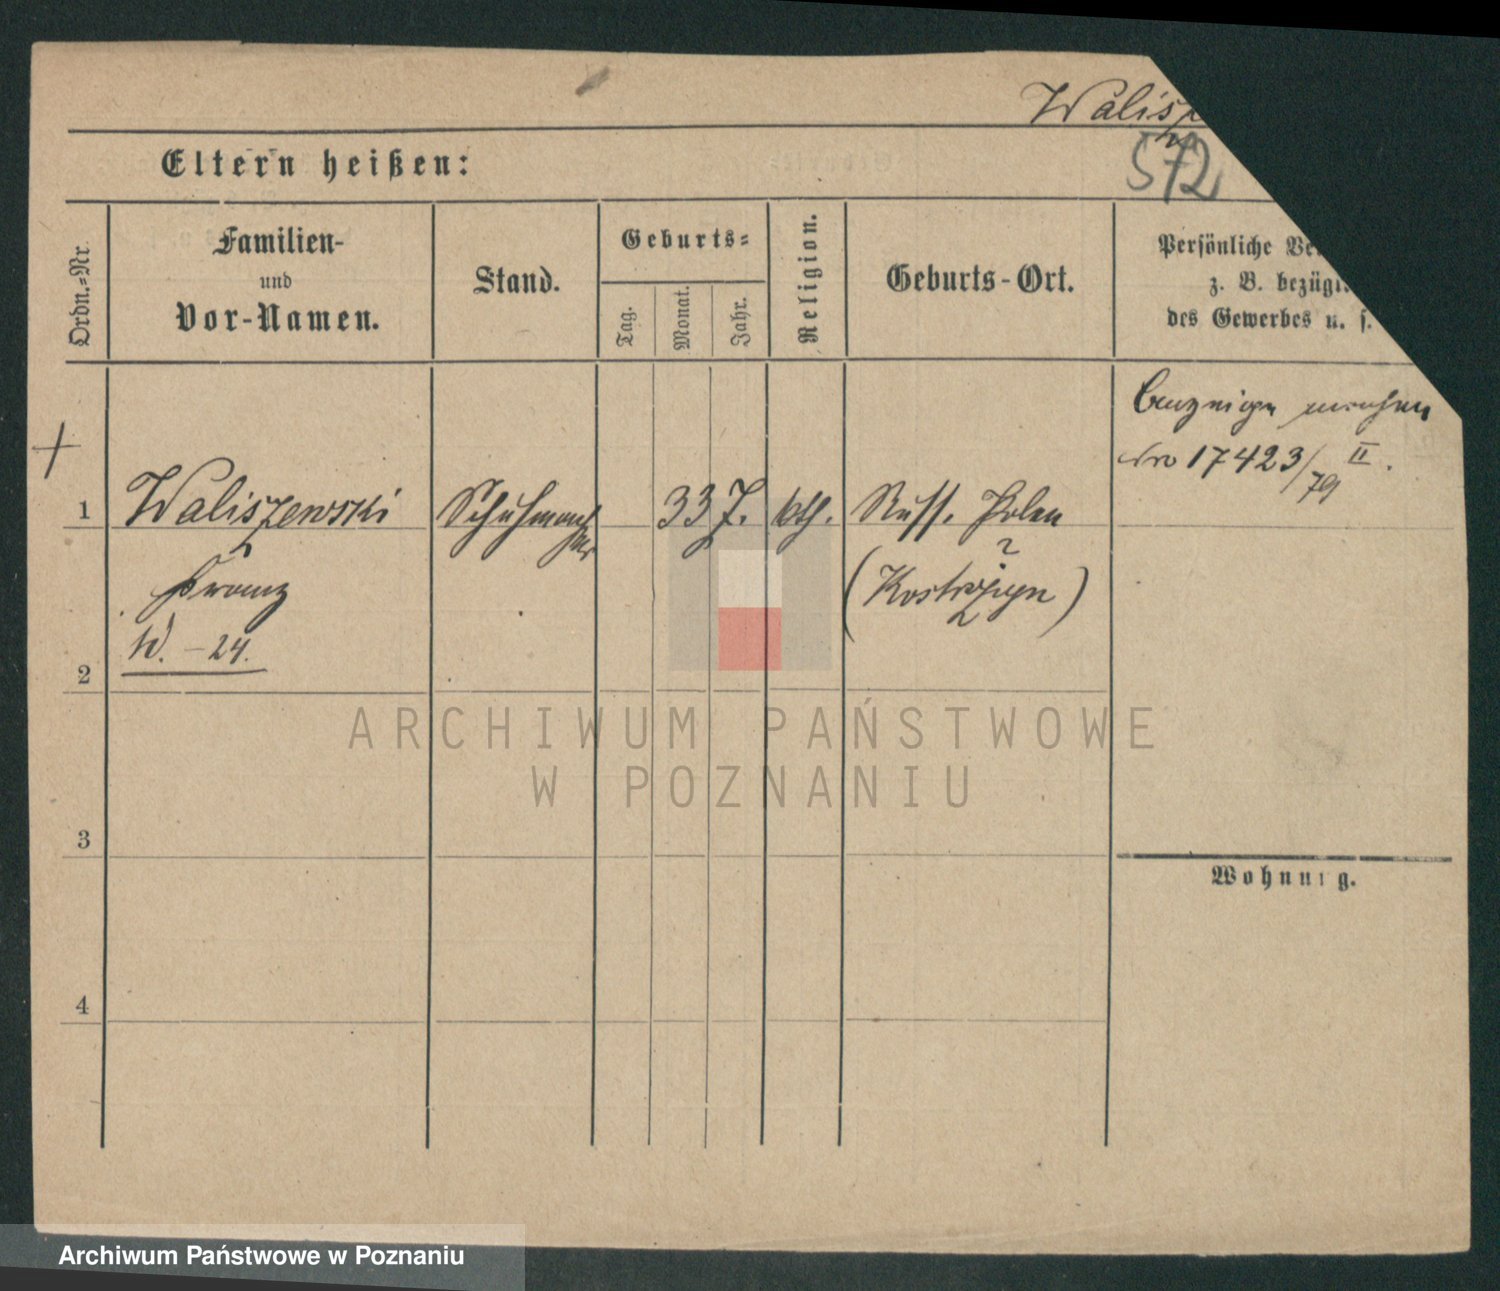 Walisz
572
Eltern heißen:
Ordn.-Nr.
Familien-
und
Vor-Namen.
Stand.
Geburts-
Tag.
Monat.
Jahr.
Religion.
Geburts-Ort.
Persönliche Ve
z. B. bezügl.
des Gewerbes u. s.
No 17423/79 II.
1
Waliszewski
Schuhmacher
33 J.
kth.
Russ. Polen
Franz
(Kostrzyn)
?
W. - 24.
2
3
4
Wohnung.
ARCHIWUM PAŃSTWOWE
W POZNANIU
Archiwum Państwowe w Poznaniu